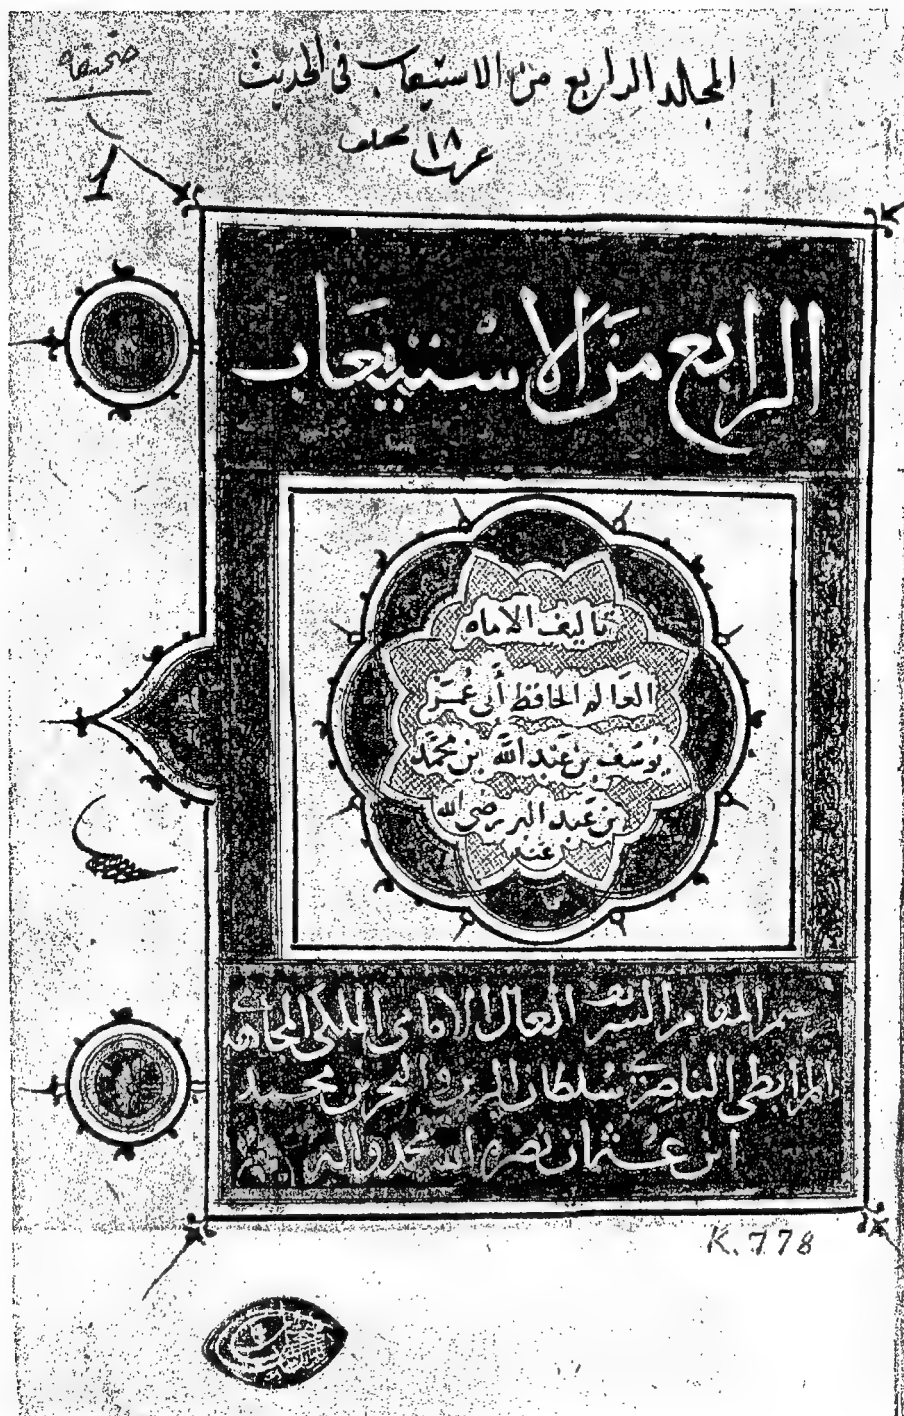 المجلد الرابع من الاستيعاب في الحديث
صحيفه
١٨
1
الرابع من الاستيعاب
تاليف الامام
العَالم الحافظ أبي عُمَرَ
يُوسُف بن عَبد الله بن محمَّد
بن عَبد البر رضي الله
عنه
برسم المقام الشريف العالي الامامي الملكي المجاهدي
المرابطي الناصري سُلطان البرين والبحرين محمد
ابن عُثمان نصره الله بمحمد واله
K. 778